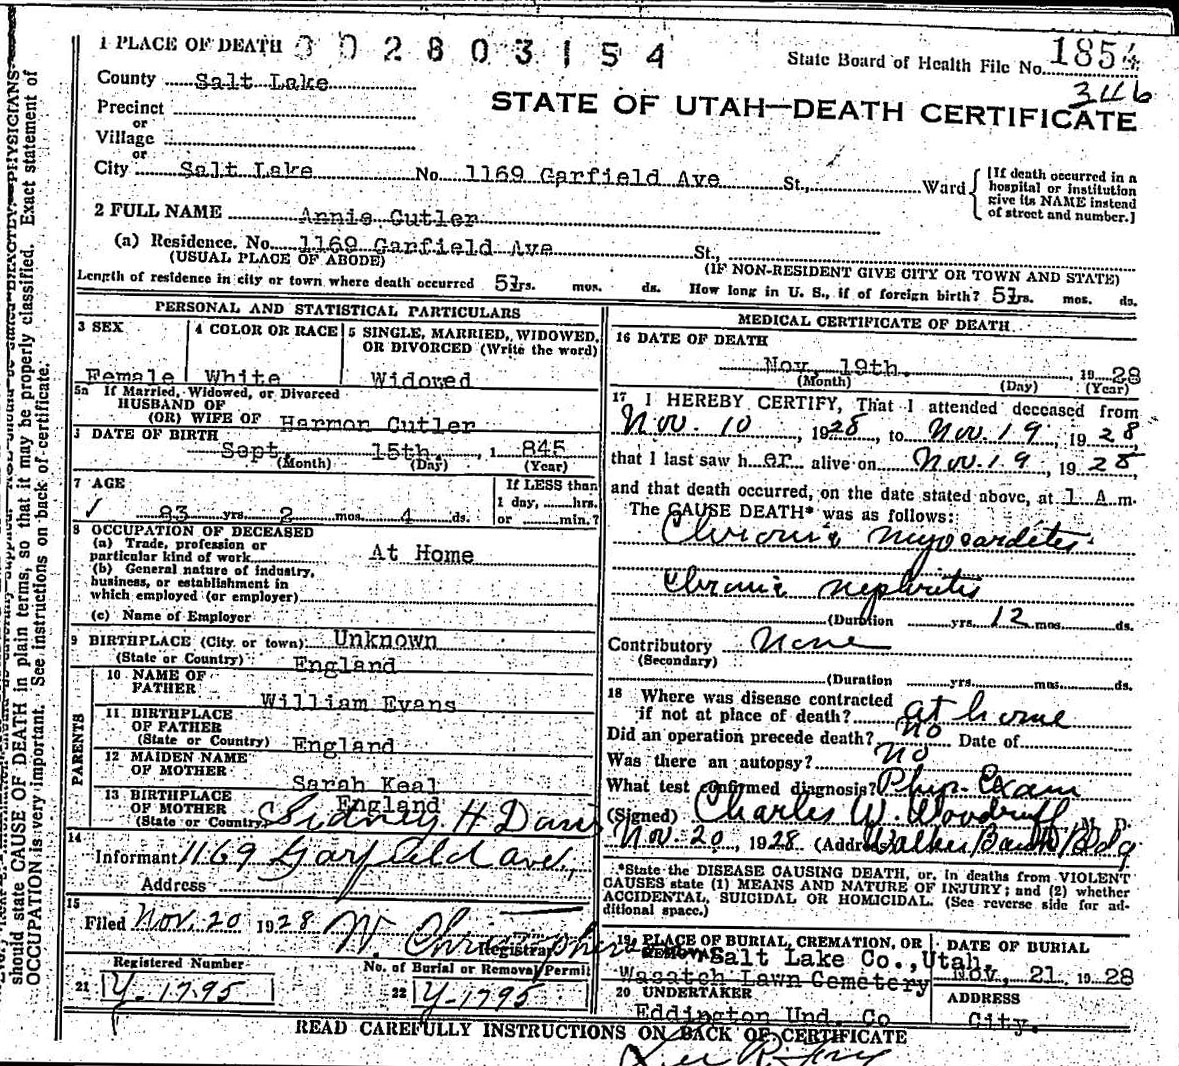 1 PLACE OF DEATH 3 0 2 8 0 3 1 5 4
State Board of Health File No. 1854
346
County Salt Lake
STATE OF UTAH—DEATH CERTIFICATE
Precinct
or
Village
or
City Salt Lake No. 1169 Garfield Ave St., Ward
[If death occurred in a
hospital or institution
give its NAME instead
of street and number.]
2 FULL NAME Annie Cutler
(a) Residence. No. 1169 Garfield Ave St.,
(USUAL PLACE OF ABODE) (IF NON-RESIDENT GIVE CITY OR TOWN AND STATE)
Length of residence in city or town where death occurred 51 yrs. mos. ds. How long in U. S., if of foreign birth? 51 yrs. mos. ds.
PERSONAL AND STATISTICAL PARTICULARS
3 SEX
Female
4 COLOR OR RACE
White
5 SINGLE, MARRIED, WIDOWED,
OR DIVORCED (Write the word)
Widowed
5a If Married, Widowed, or Divorced
HUSBAND OF
(OR) WIFE OF Harmon Cutler
DATE OF BIRTH
Sept. 15th. , 1 845
(Month) (Day) (Year)
7 AGE
83 yrs. 2 mos. 4 ds.
If LESS than
1 day, hrs.
or min.?
8 OCCUPATION OF DECEASED
(a) Trade, profession or
particular kind of work At Home
(b) General nature of industry,
business, or establishment in
which employed (or employer)
(c) Name of Employer
9 BIRTHPLACE (City or town) Unknown
(State or Country) England
PARENTS
10 NAME OF
FATHER William Evans
11 BIRTHPLACE
OF FATHER
(State or Country) England
12 MAIDEN NAME
OF MOTHER Sarah Keal
13 BIRTHPLACE
OF MOTHER England
(State or Country)
14 Sidney H Davis
Informant 1169 Garfield ave,
Address
15
Filed Nov. 20 1928 W. Christopherson
Registrar
Registered Number
21 Y-1795
No. of Burial or Removal Permit
22 Y-1795
MEDICAL CERTIFICATE OF DEATH
16 DATE OF DEATH
Nov. 19th. , 19 28
(Month) (Day) (Year)
17 I HEREBY CERTIFY, That I attended deceased from
Nov. 10 , 1928, to Nov. 19 , 1928
that I last saw her alive on Nov. 19 , 1928
and that death occurred, on the date stated above, at 1 A.m.
The CAUSE DEATH* was as follows:
Chronic myocarditis
Chronic nephritis
(Duration yrs. 12 mos. ds.
Contributory None
(Secondary)
(Duration yrs. mos. ds.
18 Where was disease contracted
if not at place of death? at home
Did an operation precede death? No Date of
Was there an autopsy? no
What test confirmed diagnosis? Phys. Exam
(Signed) Charles W. Woodruff M. D.
Nov. 20, 1928 (Address Walker Bank Bldg
*State the DISEASE CAUSING DEATH, or, in deaths from VIOLENT
CAUSES state (1) MEANS AND NATURE OF INJURY; and (2) whether
ACCIDENTAL, SUICIDAL OR HOMICIDAL. (See reverse side for ad-
ditional space.)
19 PLACE OF BURIAL, CREMATION, OR
REMOVAL Salt Lake Co., Utah.
Wasatch Lawn Cemetery
DATE OF BURIAL
Nov, 21, 19 28
20 UNDERTAKER
Eddington Und. Co
ADDRESS
City.
READ CAREFULLY INSTRUCTIONS ON BACK OF CERTIFICATE
should state CAUSE OF DEATH in plain terms, so that it may be properly classified. Exact statement of
OCCUPATION is very important. See instructions on back of certificate.